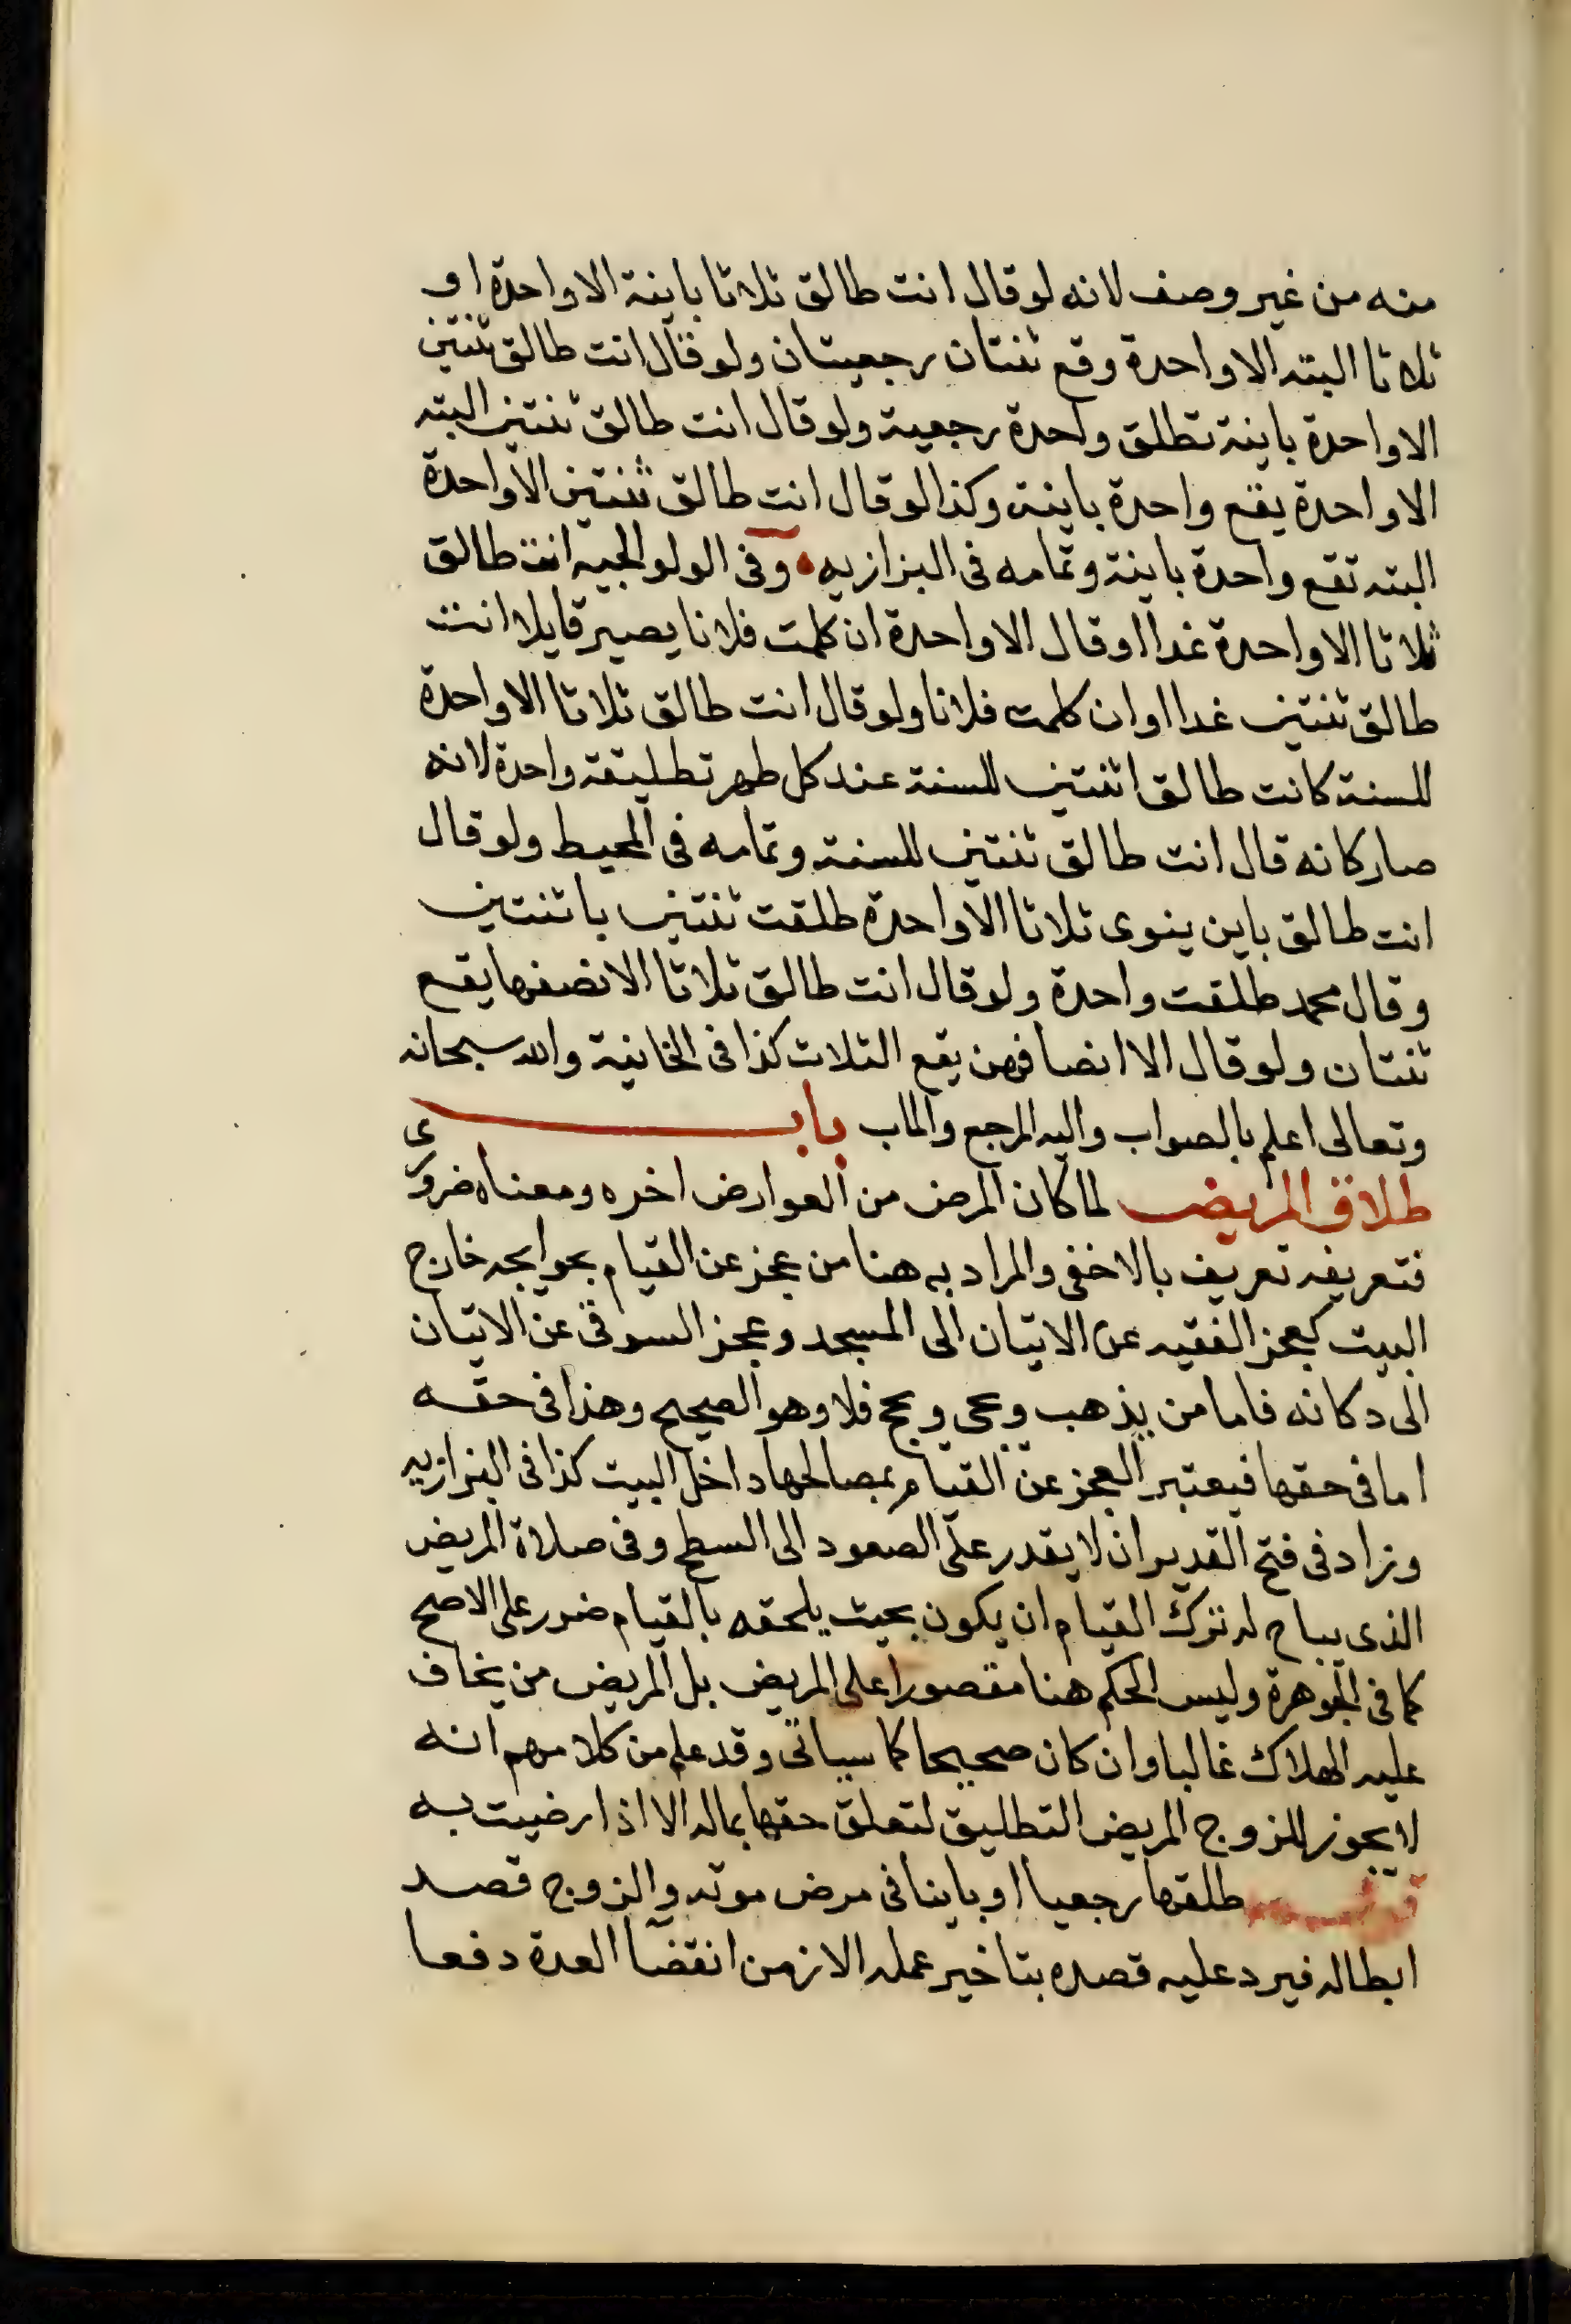 منه من غير وصف لانه لو قال انت طالق ثلاثا باينة الا واحدة او
ثلاثا البته الا واحدة وقع ثنتان رجعيتان ولو قال انت طالق ثنتين
الا واحدة باينة تطلق واحدة رجعية ولو قال انت طالق ثنتين البته
الا واحدة يقع واحدة باينة وكذا لو قال انت طالق ثنتين الا واحدة
البته تقع واحدة باينة وتمامه فى البزازيه وفى الولوالجيه انت طالق
ثلاثا الا واحدة غدا او قال الا واحدة ان كلمت فلانا يصير قايلا انت
طالق ثنتين غدا او ان كلمت فلانا ولو قال انت طالق ثلاثا الا واحدة
للسنة كانت طالق اثنتين للسنة عند كل طهر تطليقة واحدة لانه
صار كانه قال انت طالق ثنتين للسنة وتمامه فى المحيط ولو قال
انت طالق باين ينوى ثلاثا الا واحدة طلقت ثنتين باثنتين
وقال محمد طلقت واحدة ولو قال انت طالق ثلاثا الا نصفها يقع
ثنتان ولو قال الا انصافهن يقع الثلاث كذا فى الخانية والله سبحانه
وتعالى اعلم بالصواب واليه المرجع والماب باب
طلاق المريض لما كان المرض من العوارض اخره ومعناه ضرورى
فتعريفه تعريف بالاخفى والمراد به هنا من عجز عن القيام بحوايجه خارج
البيت كعجز الفقيه عن الاتيان الى المسجد وعجز السوقى عن الاتيان
الى دكانه فاما من يذهب ويجى ويحج فلا وهو الصحيح وهذا فى حقه
اما فى حقها فيعتبر العجز عن القيام بمصالحها داخل البيت كذا فى البزازيه
وزاد فى فتح القدير ان لا يقدر على الصعود الى السطح وفى صلاة المريض
الذى يباح له ترك القيام ان يكون بحيث يلحقه بالقيام ضرر على الاصح
كما فى الجوهرة وليس الحكم هنا مقصورا على المريض بل المريض من يخاف
عليه الهلاك غالبا وان كان صحيحا كما سياتى وقد علم من كلامهم انه
لا يجوز للزوج المريض التطليق لتعلق حقها بماله الا اذا رضيت به
طلقها رجعيا او باينا فى مرض موته والزوج قصد
ابطاله فيرد عليه قصده بتاخير عمله الا زمن انقضا العدة دفعا